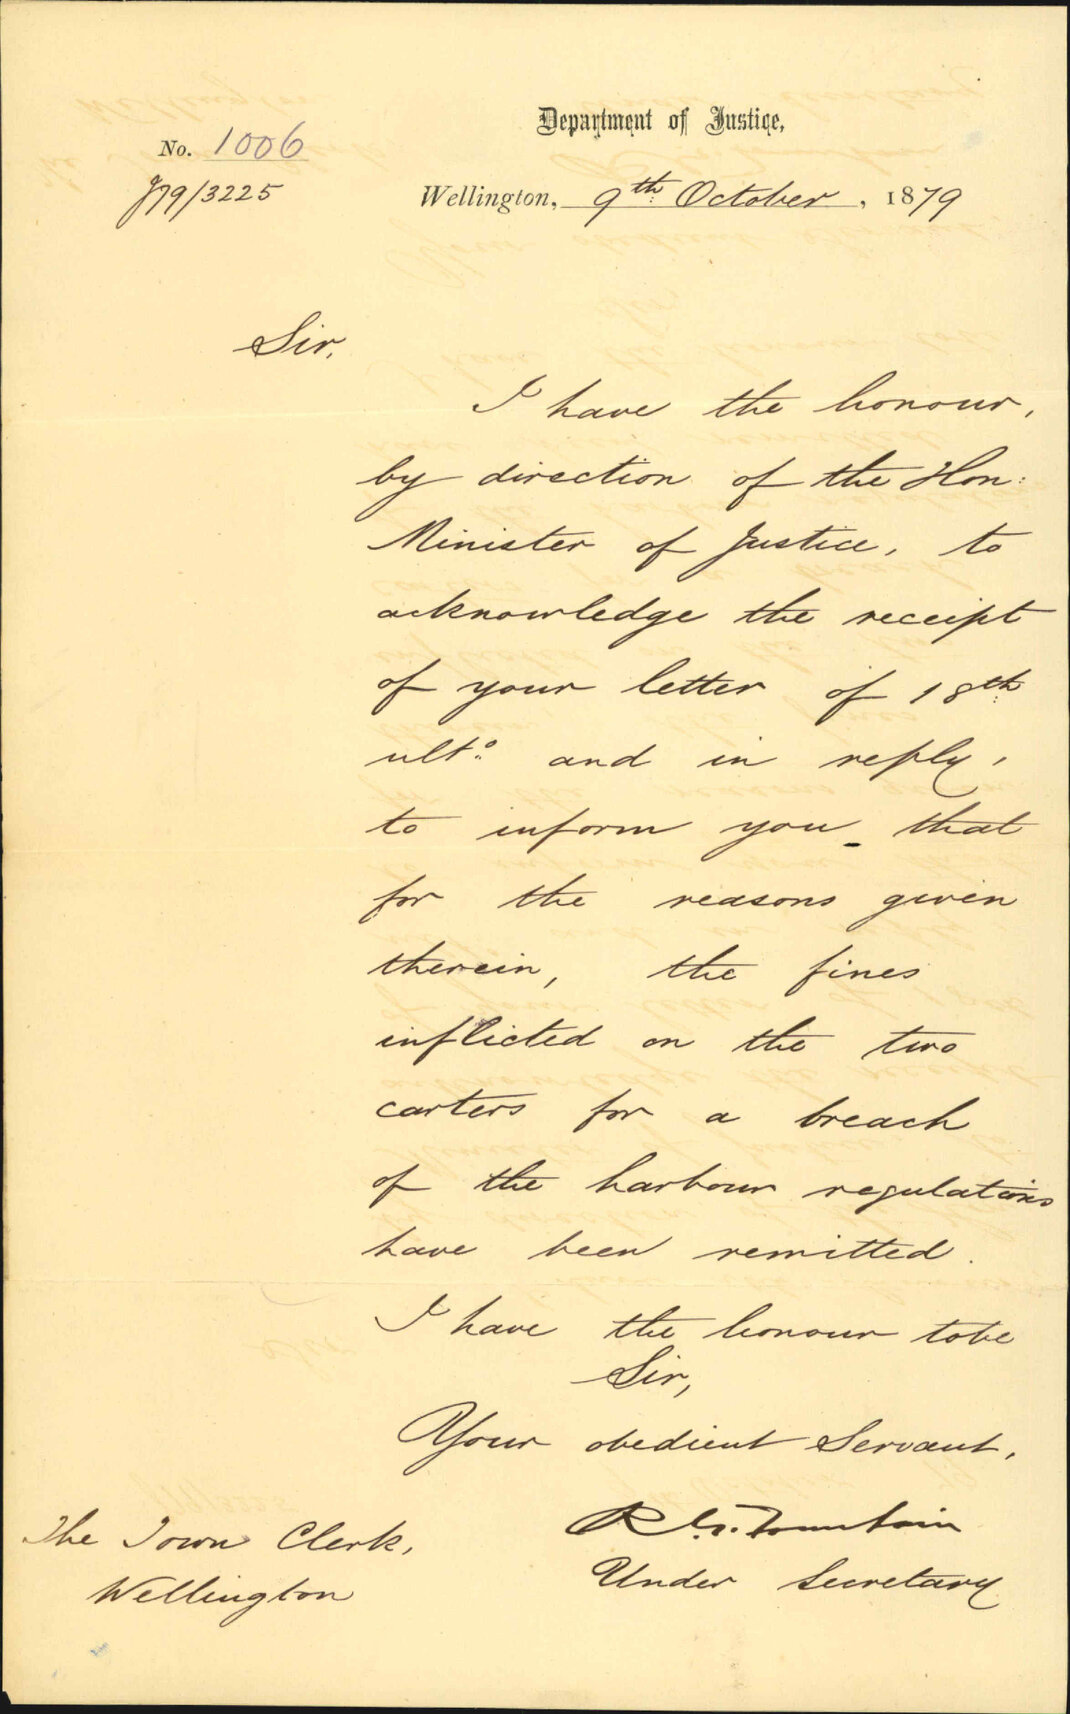 Department of Justice,
No. 1006
J79/3225
Wellington, 9th October, 1879
Sir,
I have the honour,
by direction of the Hon:
Minister of Justice, to
acknowledge the receipt
of your letter of 18th
ulto: and in reply,
to inform you that
for the reasons given
therein, the fines
inflicted on the two
carters for a breach
of the harbour regulations
have been remitted.
I have the honour to be
Sir,
Your obedient Servant,
R. G. Fountain
Under Secretary
The Town Clerk,
Wellington